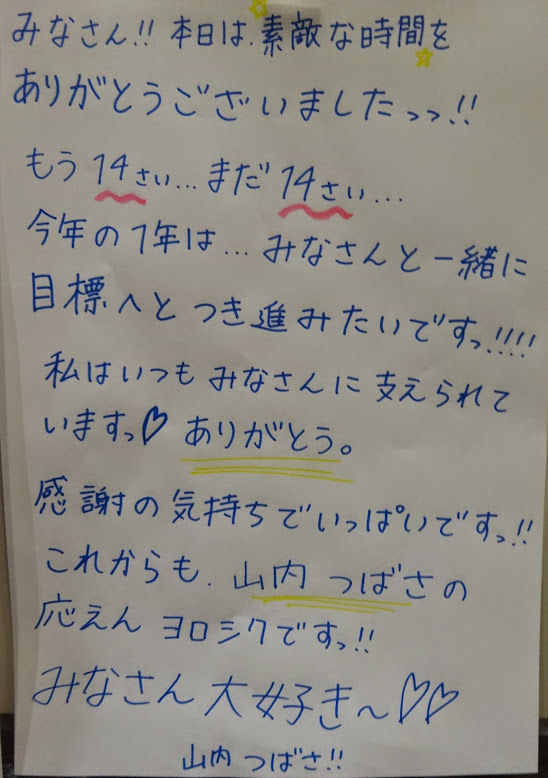 みなさん!! 本日は、素敵な時間を
ありがとうございましたっっ!!
もう14さい...まだ14さい...
今年の1年は...みなさんと一緒に
目標へとつき進みたいですっ!!!!
私はいつもみなさんに支えられて
いますっ♡ ありがとう。
感謝の気持ちでいっぱいですっ!!
これからも、山内つばさの
応えんヨロシクですっ!!
みなさん大好き〜♡♡
山内つばさ!!